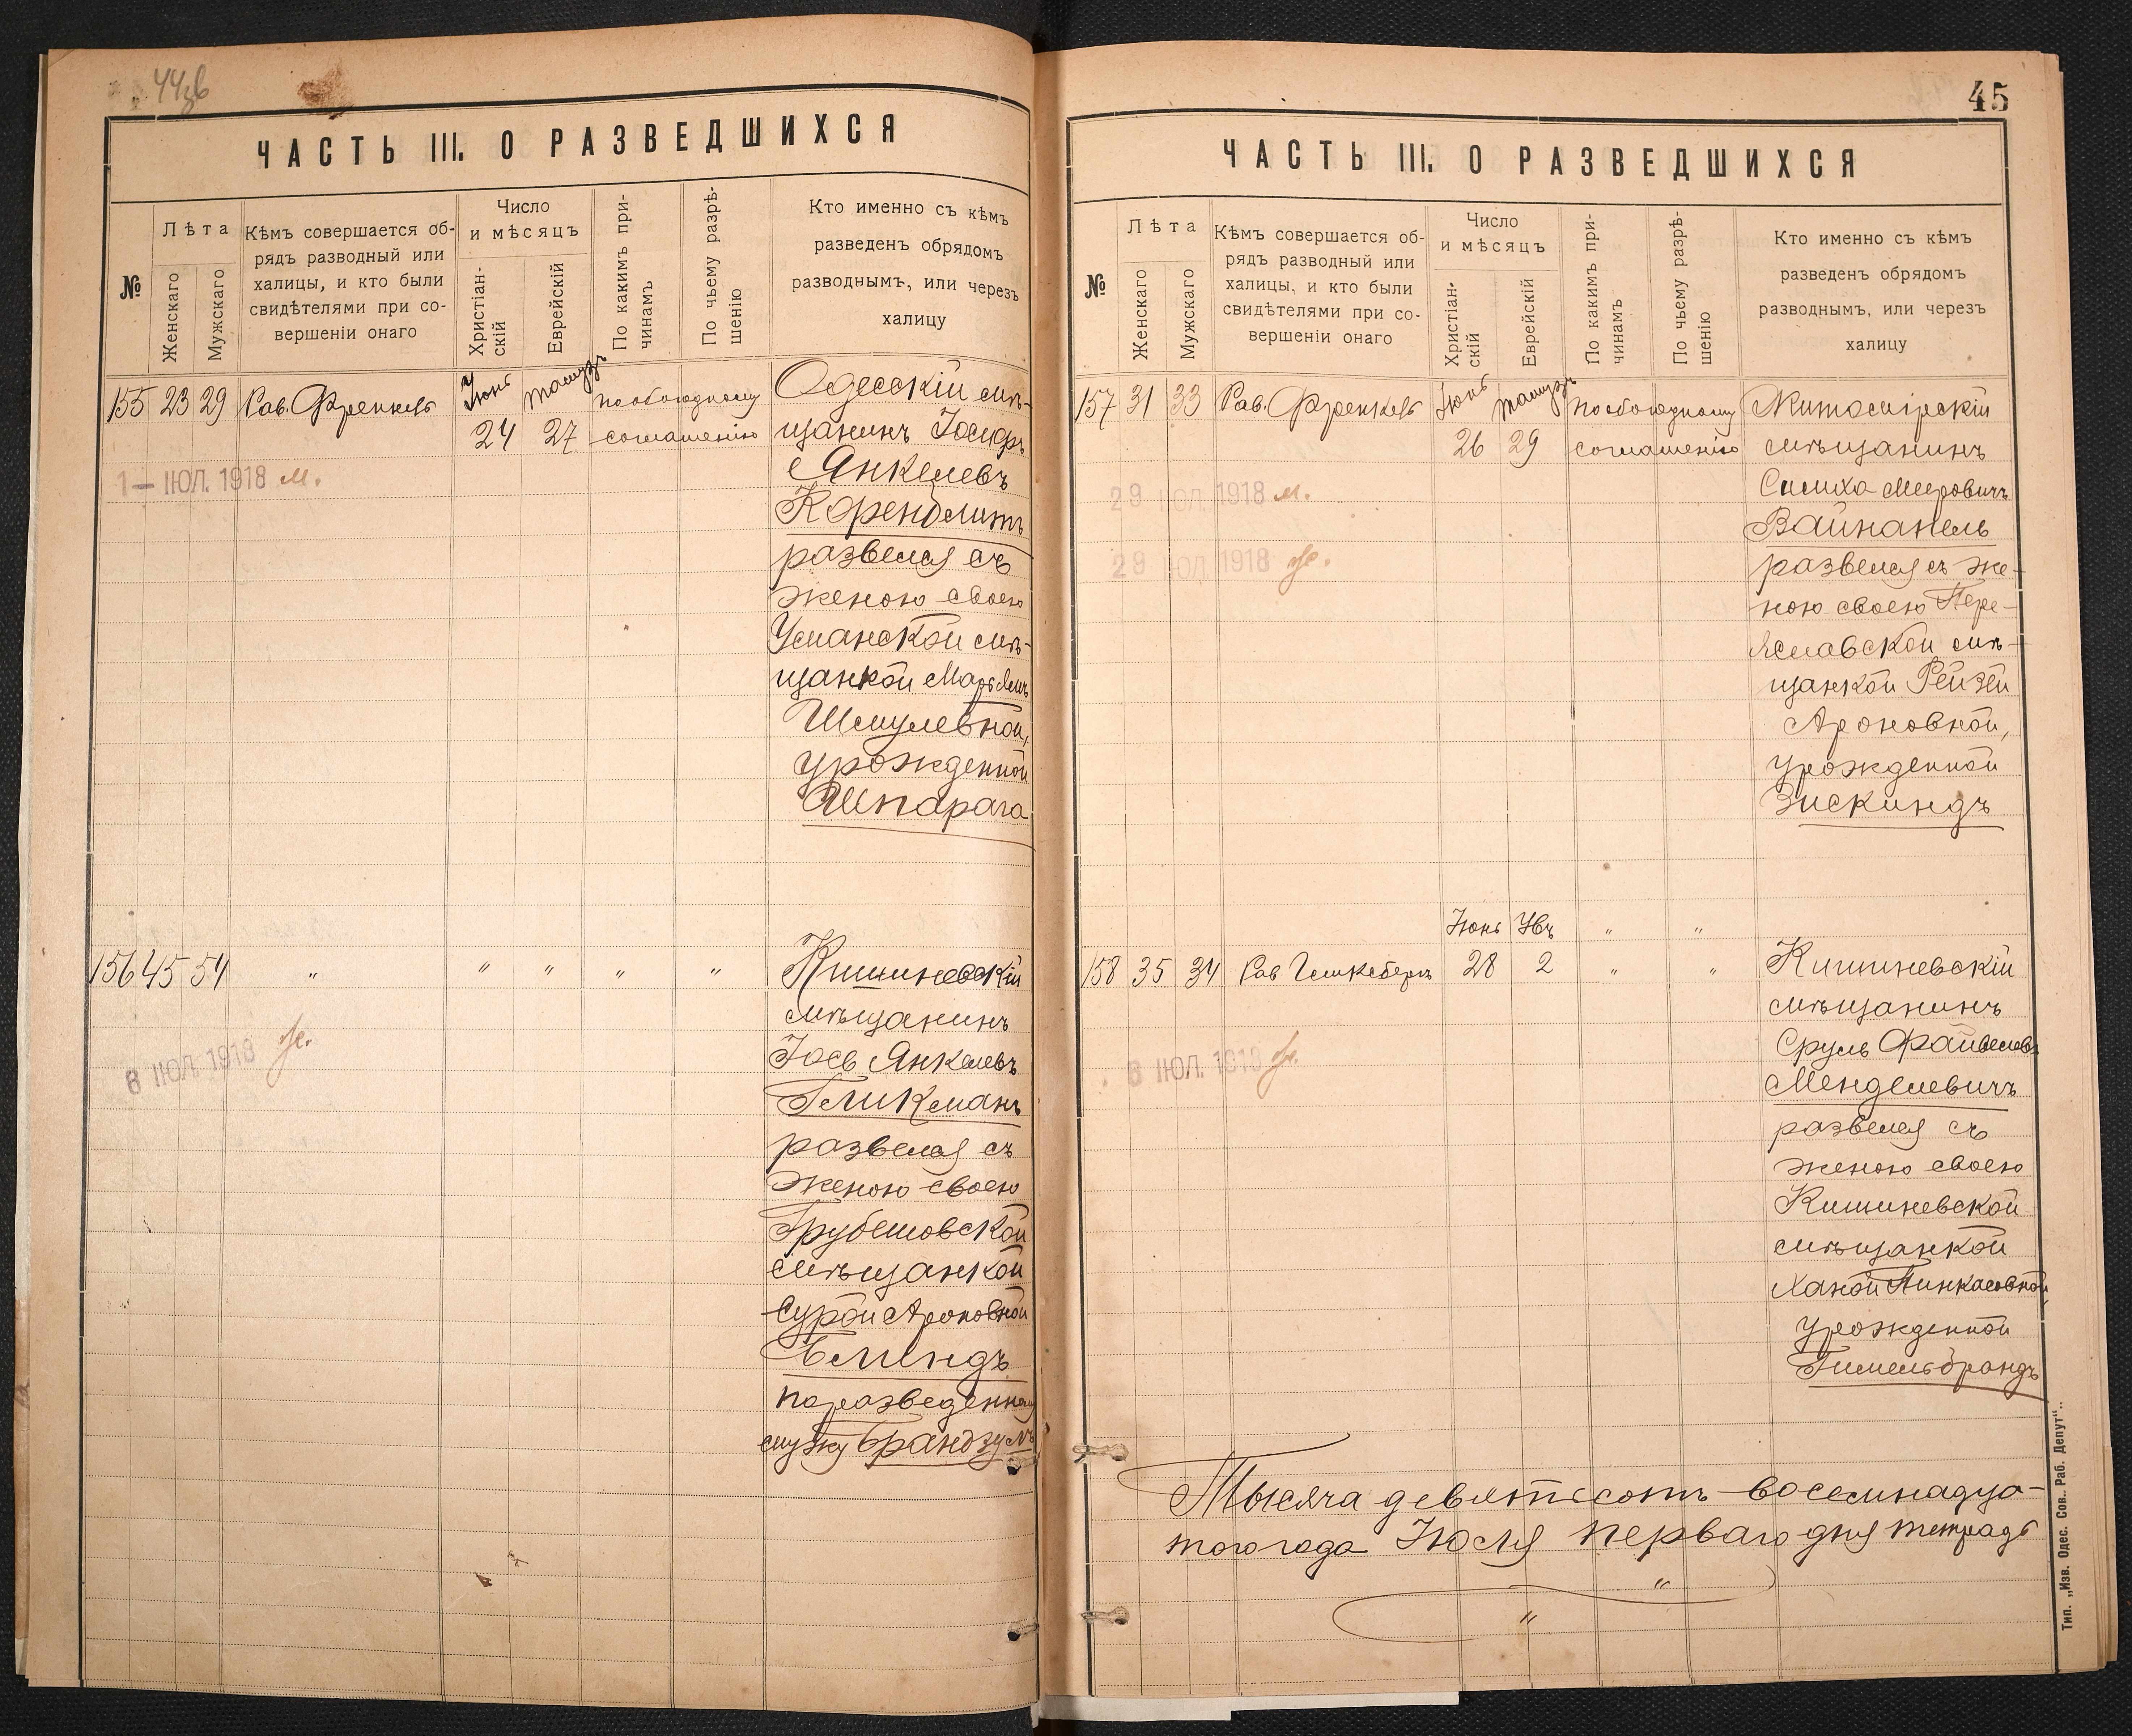 44зв
ЧАСТЬ III. О РАЗВЕДШИХСЯ
№
Лѣта
Женскаго
Мужскаго
Кѣмъ совершается об-
рядъ разводный или
халицы, и кто были
свидѣтелями при со-
вершеніи онаго
Число
и мѣсяцъ
Христіан-
скій
Еврейскій
По какимъ при-
чинамъ
По чьему разрѣ-
шенію
Кто именно съ кѣмъ
разведенъ обрядомъ
разводнымъ, или через
халицу
155 23 29 Рав. Френкель Іюнь 24 Тамузъ 27 по обоюдному
согмашенію
Одесскій мѣ-
щанинъ Іосифъ
Янкелевъ
Коренблитъ
развелся съ
женою своею
Уманской мѣ-
щанкой Марьямъ
Шмулевной,
урожденной
Шпарага
1 – ІЮЛ. 1918 м.
156 45 54 " " " " "
Кишиневскій
мѣщанинъ
Іось Янкелевъ
Гликманъ
развелся съ
женою своею
Грубешовской
мѣщанкой
Сурой Ароновной
Блиндъ
по разведенному
мужу Брандзумъ
6 ІЮЛ. 1918 ж.
45
ЧАСТЬ III. О РАЗВЕДШИХСЯ
№
Лѣта
Женскаго
Мужскаго
Кѣмъ совершается об-
рядъ разводный или
халицы, и кто были
свидѣтелями при со-
вершеніи онаго
Число
и мѣсяцъ
Христіан-
скій
Еврейскій
По какимъ при-
чинамъ
По чьему разрѣ-
шенію
Кто именно съ кѣмъ
разведенъ обрядомъ
разводнымъ, или черезъ
халицу
157 31 33 Рав. Френкель Іюнь 26 Тамузъ 29 по обоюдному
соглашенію
Житомірскій
мѣщанинъ
Симха Мееровичъ
Вайнапель
развелся съ же-
ною своею Пере-
яславской мѣ-
щанкой Рейзей
Ароновной,
урожденной
Зискиндъ
29 ІЮЛ. 1918 м.
29 ІЮЛ. 1918 ж.
Іюнь Увъ " "
158 35 34 Рав 28 2 " "
Кишиневскій
мѣщанинъ
Сруль Файвелевъ
Менделевичъ
развелся съ
женою своею
Кишиневской
мѣщанкой
Ханой Пинкасовной,
урожденной
Гимельбрандъ
6 ІЮЛ. 1918 ж.
Тысяча девятьсотъ восемнадца-
того года Іюля перваго дня тетрадь
"
"
Тип. „Изв. Одес. Сов. Раб. Депут“..